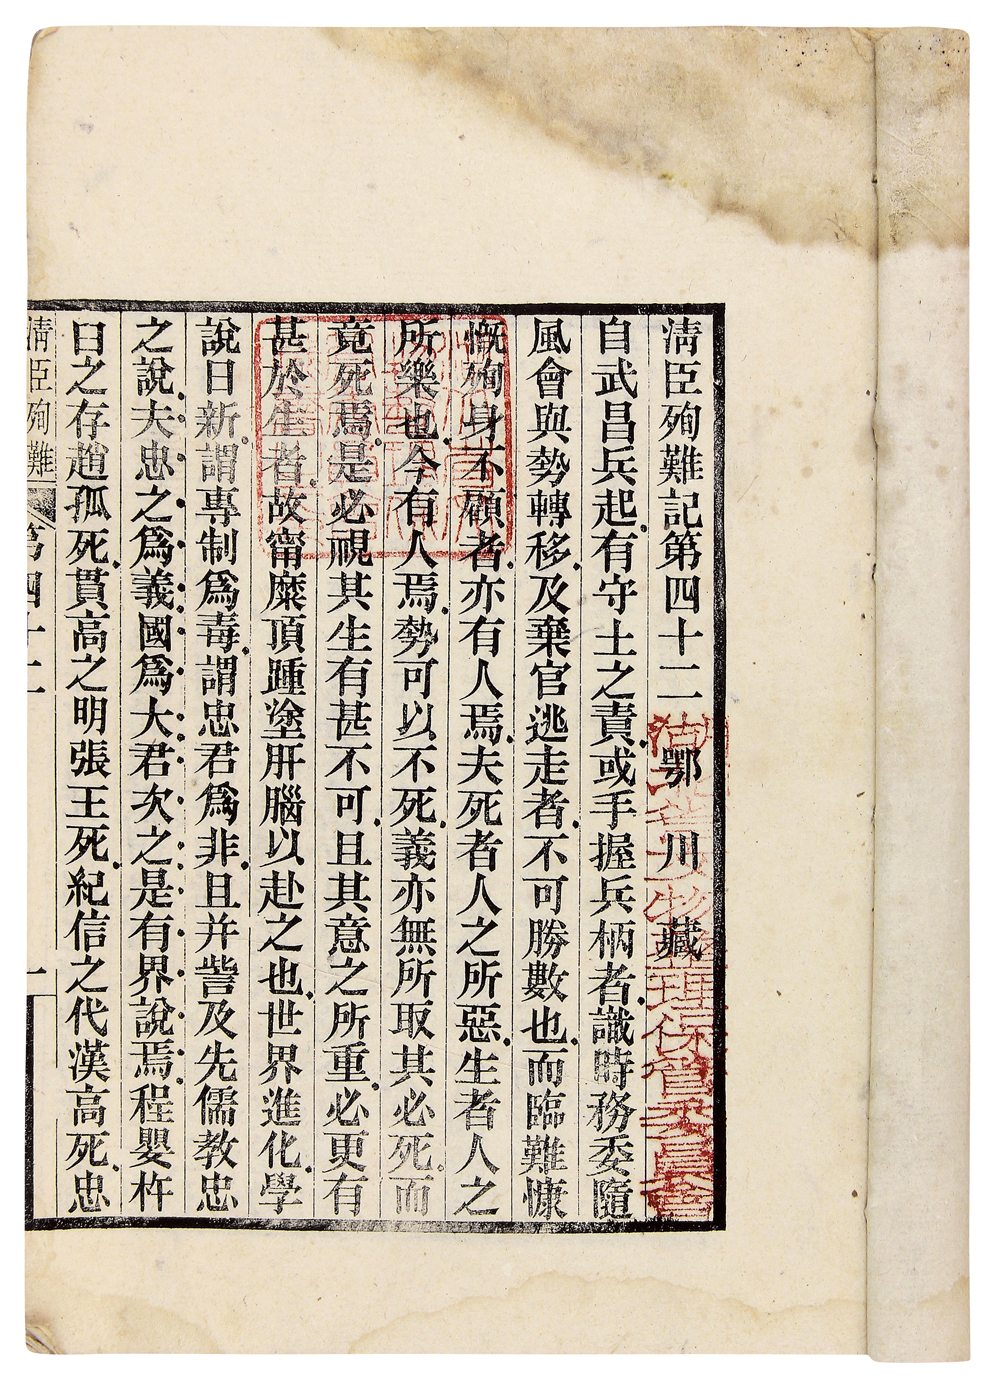 清臣殉難記第四十二 鄂川藏
自武昌兵起有守土之責或手握兵柄者識時務委隨
風會與勢轉移及棄官逃走者不可勝數也而臨難慷
慨殉身不顧者亦有人焉夫死者人之所惡生者人之
所樂也今有人焉勢可以不死義亦無所取其必死而
竟死焉是必視其生有甚不可且其意之所重必更有
甚於生者故甯糜頂踵塗肝腦以赴之也世界進化學
說日新謂專制爲毒謂忠君爲非且并訾及先儒教忠
之說夫忠之爲義國爲大君次之是有界說焉程嬰杵
臼之存趙孤死貫高之明張王死紀信之代漢高死忠
清臣殉難 第四十二 一